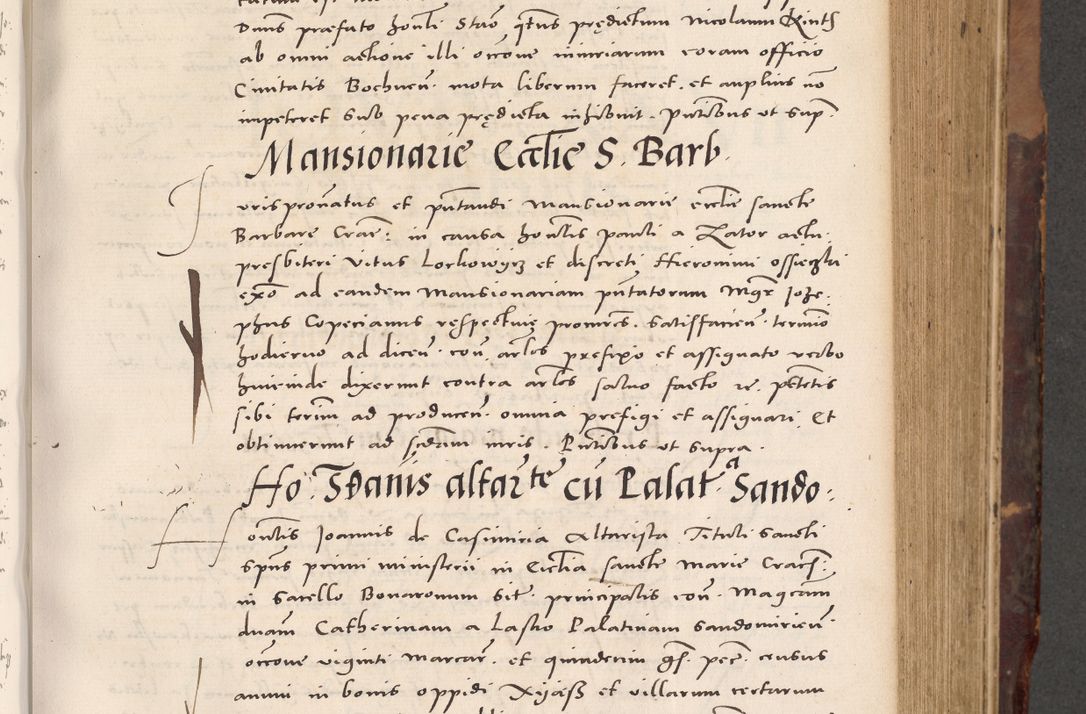 Dnus præfato honli Stao qtus prędictum Nicolaum
ab omni actione illi occone iniuriarum coram officio
Civitatis Bochnen. mota liberum faceret, et amplius no
impeteret sub pena prędicta inhibuit. Pntibus ut sup.
Mansionarie Eccłie S. Barb.
uris pronatus et pntandi Mansionarie ecclie sancte
Barbare Crac: in causa honlis pauli a Zator actu.
presbiteri Vitus et discreti Hieronimi
exo ad eandem Mansionariam pntatorum Mgr Joze-
phus Copecianus respectiuę promres. satisfacien. termino
hodierno ad dicen. con. arlos prefixo et assignato verbo
huiuinde dixerunt contra arlos saluo facto re. petetis
sibi terim ad producen. omnia prefigi et assignari, Et
obtinuerunt ad scdam iuris. Pntibus ut supra.
Ho. Joanis altarte cu Palat.a Sando.
onlis Joannis de Casimiria Altarista Tituli Sancti
Spus primi ministerii in Ecclia sancte Marie Crac.
in Sacello Bonarorum sit. principalis con. Magcam
dnam Catherinam a Lasko Palatinam Sandomirien.
occone viginti Marcar. et quindecim gs. pec. census
annui in bonis oppidi Xyass et villarum certarum